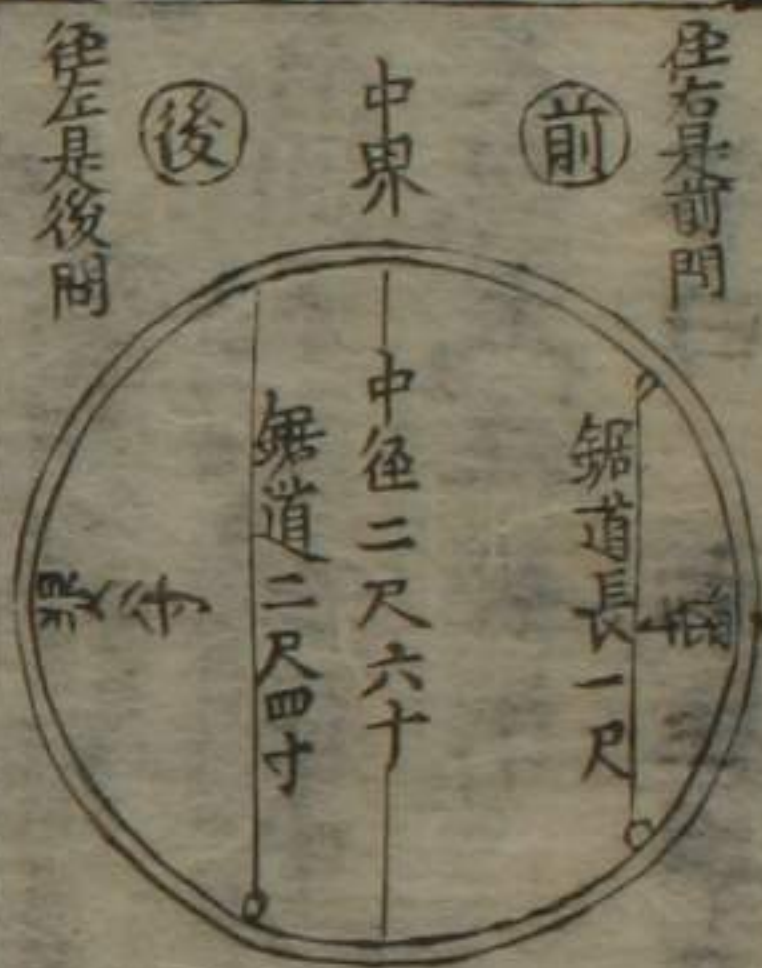 径右是前問
前
中界
後
径左是後問
鋸道長一尺
中径二尺六十
鋸道二尺四寸